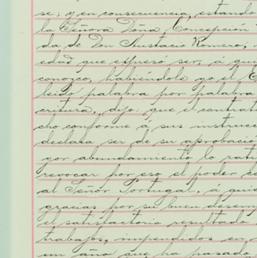 se, y en consecuencia, estando
la Señora Doña Concepción
da de Don Eustacio Romero,
edad que expresó ser, á qui
conozco, habiéndole yo el E
leido palabra por palabra
critura, dijo: que el contrat
cho conforme á sus instruc
declara ser de su aprobacio
yor abundamiento lo rati
revocar por eso el poder
al Señor Portugal, á quie
gracias por su buen desem
el satisfactorio resultado
trabajos, impendidos en
un año que ha pasado